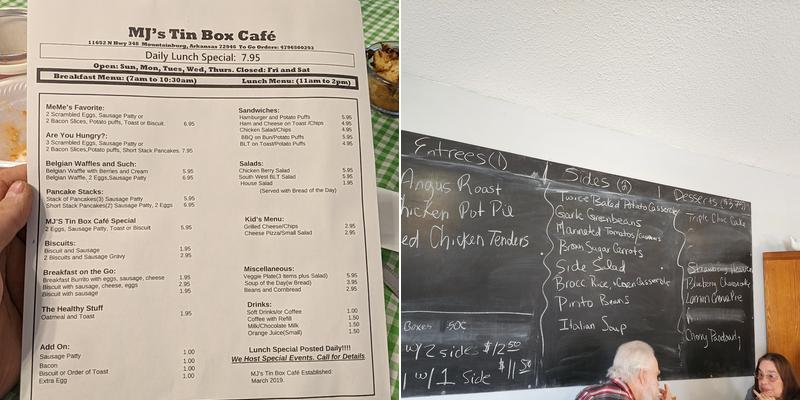 MJ's Tin Box Café
11692 N Hwy 348 Mountainburg, Arkansas 72946 To Go Orders: 4796500293
Daily Lunch Special: 7.95
Open: Sun, Mon, Tues, Wed, Thurs. Closed: Fri and Sat
Breakfast Menu: (7am to 10:30am) Lunch Menu: (11am to 2pm)
MeMe's Favorite:
2 Scrambled Eggs, Sausage Patty or
2 Bacon Slices, Potato puffs, Toast or Biscuit. 6.95
Are You Hungry?:
3 Scrambled Eggs, Sausage Patty or
2 Bacon Slices,Potato puffs, Short Stack Pancakes. 7.95
Belgian Waffles and Such:
Belgian Waffle with Berries and Cream 5.95
Belgian Waffle, 2 Eggs,Sausage Patty 6.95
Pancake Stacks:
Stack of Pancakes(3) Sausage Patty 5.95
Short Stack Pancakes(2) Sausage Patty, 2 Eggs 6.95
MJ'S Tin Box Café Special
2 Eggs, Sausage Patty, Toast or Biscuit 5.95
Biscuits:
Biscuit and Sausage 1.95
2 Biscuits and Sausage Gravy 2.95
Breakfast on the Go:
Breakfast Burrito with eggs, sausage, cheese 1.95
Biscuit with sausage, cheese, eggs 2.95
Biscuit with sausage 1.95
The Healthy Stuff
Oatmeal and Toast 1.95
Add On:
Sausage Patty 1.00
Bacon 1.00
Biscuit or Order of Toast 1.00
Extra Egg 1.00
Sandwiches:
Hamburger and Potato Puffs 5.95
Ham and Cheese on Toast /Chips 4.95
Chicken Salad/Chips 4.95
BBQ on Bun/Potato Puffs 5.95
BLT on Toast/Potato Puffs 4.95
Salads:
Chicken Berry Salad 5.95
South West BLT Salad 5.95
House Salad 1.95
(Served with Bread of the Day)
Kid's Menu:
Grilled Cheese/Chips 2.95
Cheese Pizza/Small Salad 2.95
Miscellaneous:
Veggie Plate(3 items plus Salad) 5.95
Soup of the Day(w Bread) 3.95
Beans and Cornbread 2.95
Drinks:
Soft Drinks/or Coffee 1.00
Coffee with Refill 1.50
Milk/Chocolate Milk 1.50
Orange Juice(Small) 1.50
Lunch Special Posted Daily!!!!
We Host Special Events. Call for Details
MJ's Tin Box Café Established:
March 2019.
Entrees (1)
Angus Roast
hicken Pot Pie
ed Chicken Tenders
Boxes 50¢
w/ 2 sides $12.50
w/ 1 Side $11.50
Sides (2)
Twice Baked Potato Casserole
Garlic Greenbeans
Marinated Tomatos/
Brown Sugar Carrots
Side Salad
Brocc Rice, Corn Casserole
Pinto Beans
Italian Soup
Desserts ($3.75)
Triple Choc Cake
Strawberry
Blueberry Cheesecake
Lemon Creme Pie
Cherry